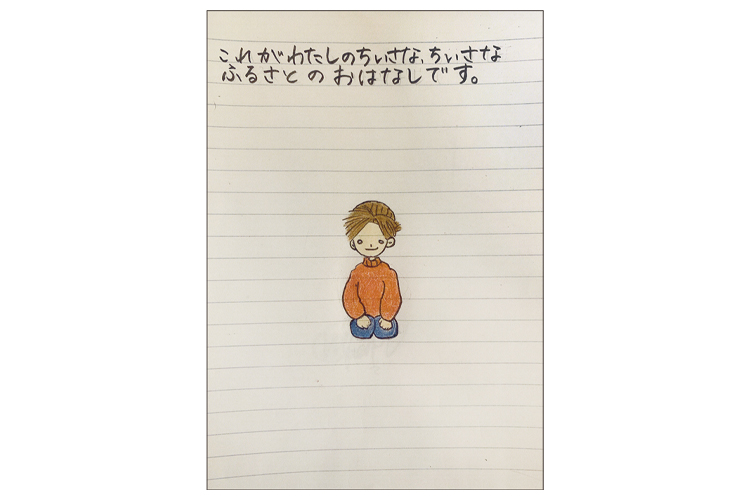 これがわたしのちいさな、ちいさな
ふるさとのおはなしです。